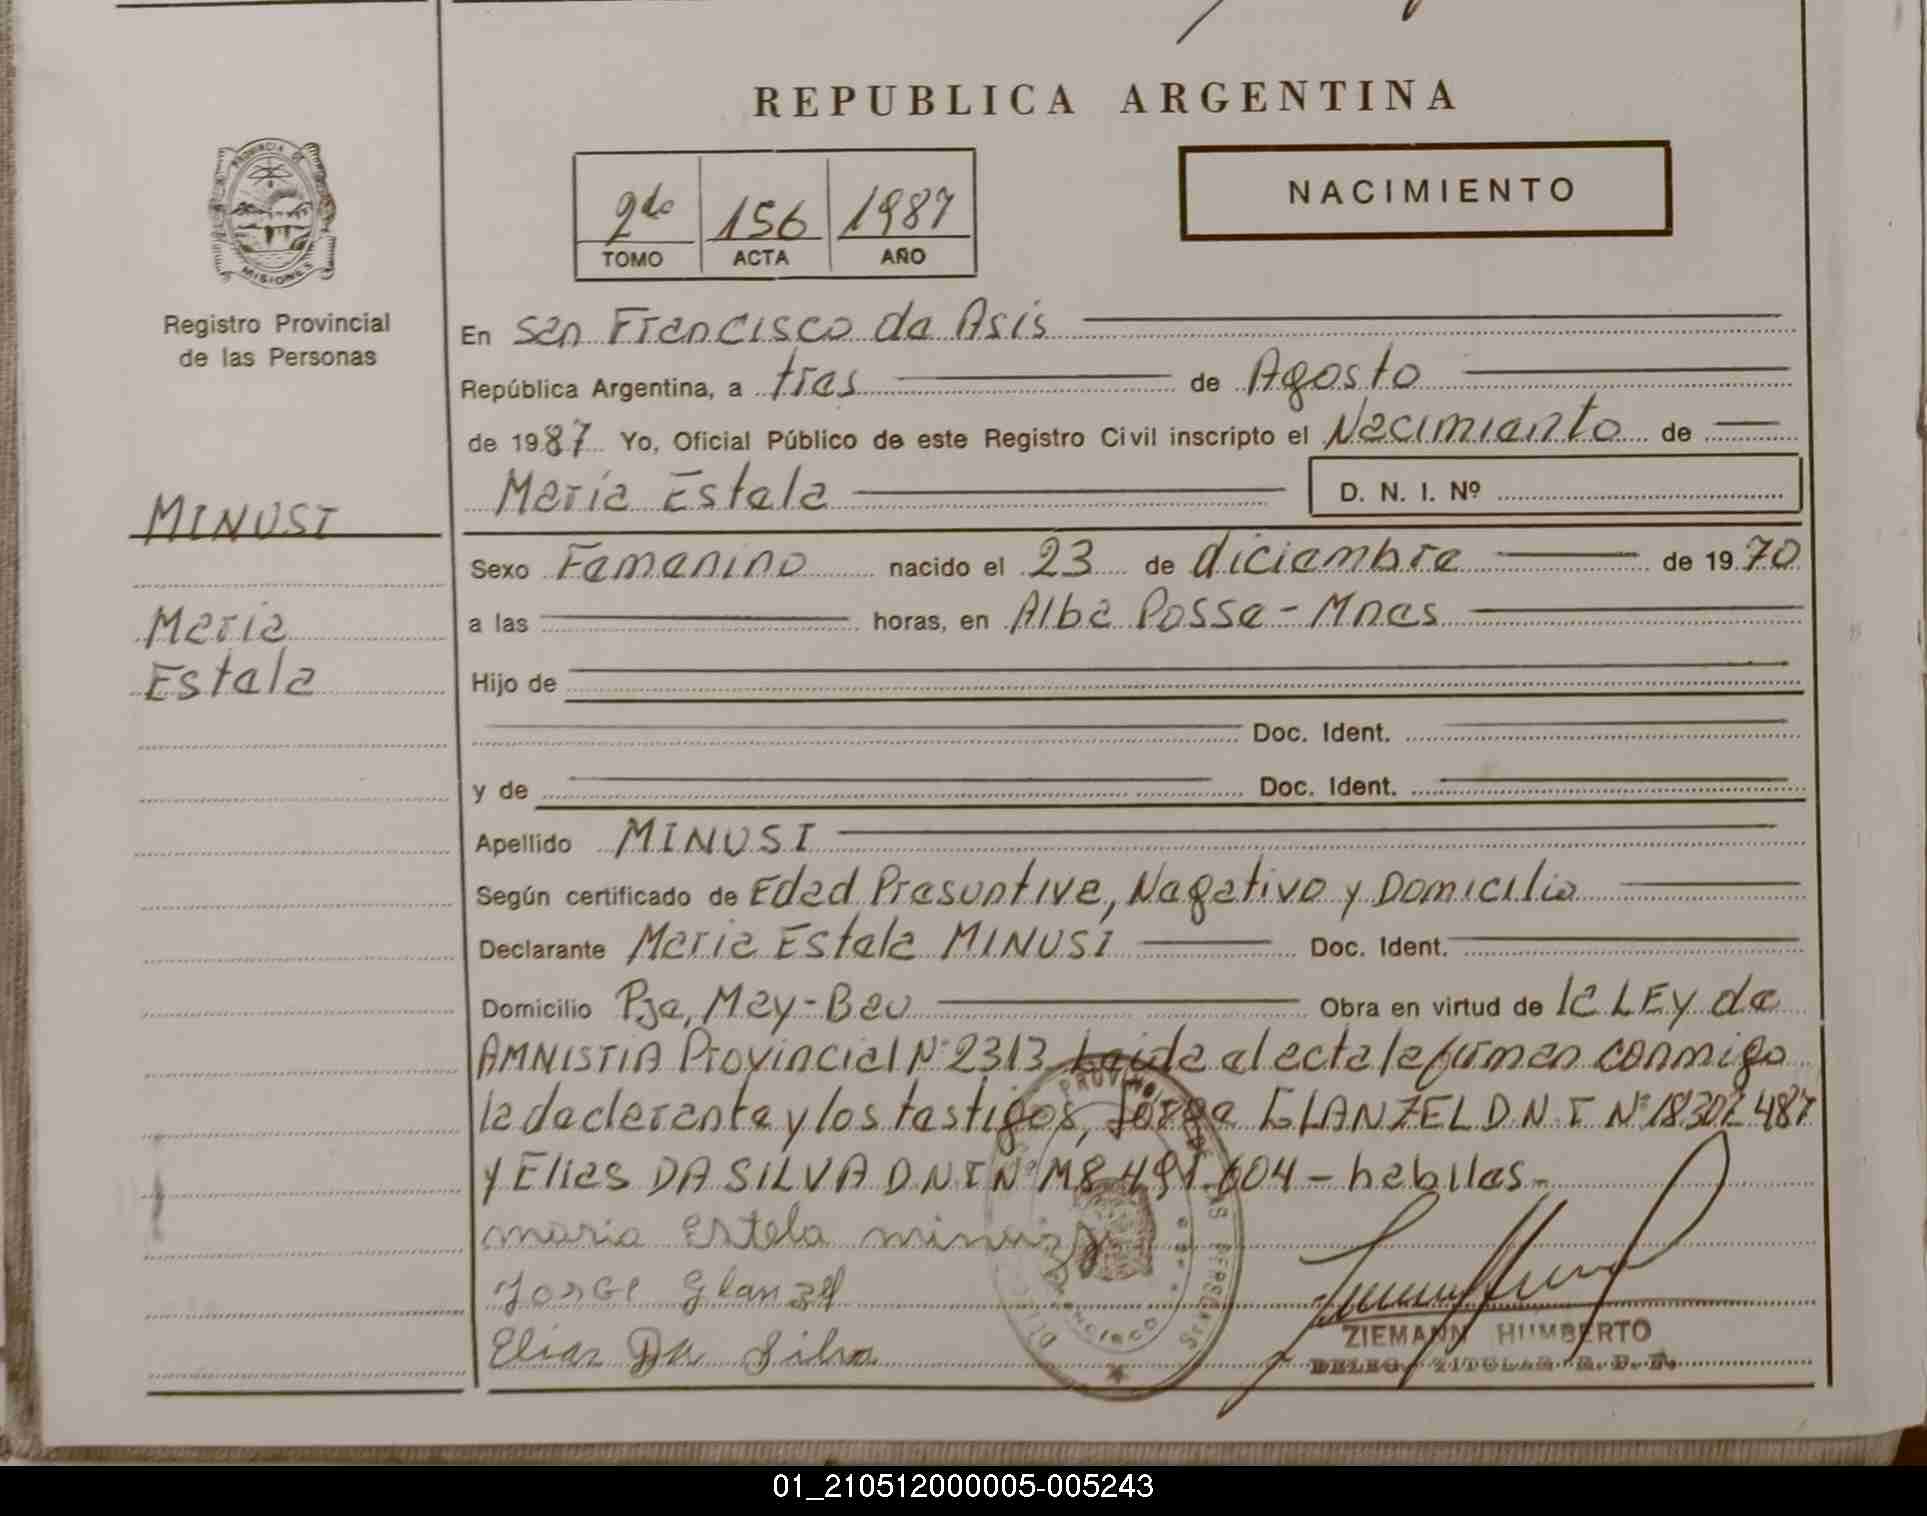 REPUBLICA ARGENTINA
PROVINCIA DE
MISIONES
Registro Provincial
de las Personas
2do 156 1987
TOMO ACTA AÑO
NACIMIENTO
En San Francisco de Asis
República Argentina, a tres de Agosto
de 1987 Yo, Oficial Público de este Registro Civil inscripto el Nacimiento de
María Estela D. N. I. Nº
MINUSI
Sexo Femenino nacido el 23 de diciembre de 1970
María
a las horas, en Alba Posse - Mnes
Estela
Hijo de
Doc. Ident.
y de Doc. Ident.
Apellido MINUSI
Según certificado de Edad Presuntive, Negativo y Domicilio
Declarante Maria Estela MINUSI Doc. Ident.
Domicilio Pje, May-Beu Obra en virtud de la LEy de
AMNISTIA Provincial Nº 2313 Leida el acta la firman conmigo
la declarante y los testigos, Jorge GLANZEL D.N.I Nº 18.302.487
y Elias DA SILVA D.N.I Nº M8.491.604 - habiles.-
maria Estela
Jorge Glanzel
Elias Da Silva
ZIEMANN HUMBERTO
DELEG. TITULAR R.P.P.
01_210512000005-005243